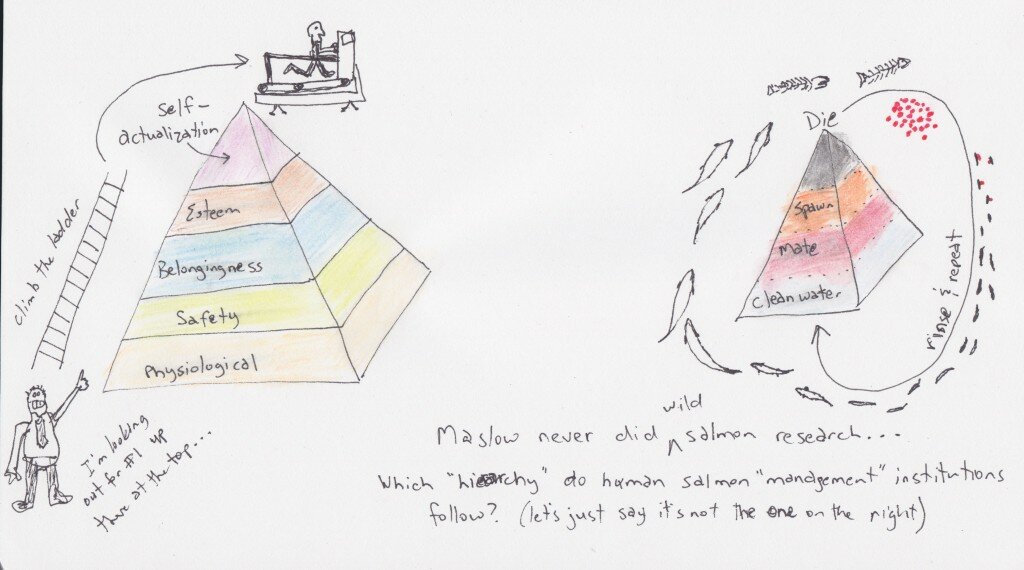 self-
actualization
Esteem
Belongingness
Safety
Physiological
climb the ladder
I'm looking
out for #1 up
there at the top...
Die
Spawn
Mate
Clean water
rinse & repeat
Maslow never did wild salmon research...
Which "hierarchy" do human salmon "management" institutions
follow? (let's just say it's not the one on the right)